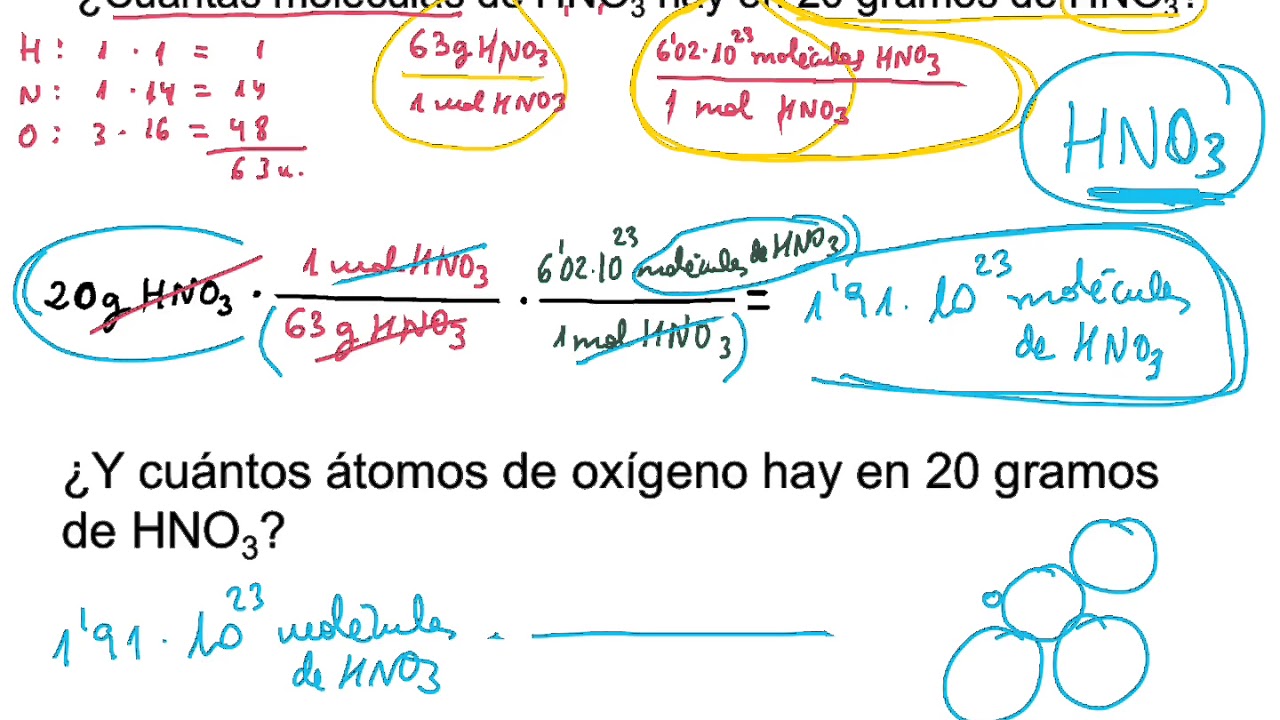 ¿Cuántas moléculas de HNO₃ hay en 20 gramos de HNO₃?
H: 1 · 1 = 1
N: 1 · 14 = 14
O: 3 · 16 = 48
63u.
63g HNO₃
1 mol HNO₃
6'02·10²³ molécules HNO₃
1 mol HNO₃
HNO₃
20g HNO₃ · 1 mol HNO₃ / 63 g HNO₃ · 6'02·10²³ moléculas de HNO₃ / 1 mol HNO₃ = 1'91·10²³ moléculas
de HNO₃
¿Y cuántos átomos de oxígeno hay en 20 gramos
de HNO₃?
1'91·10²³ moléculas ·
de HNO₃